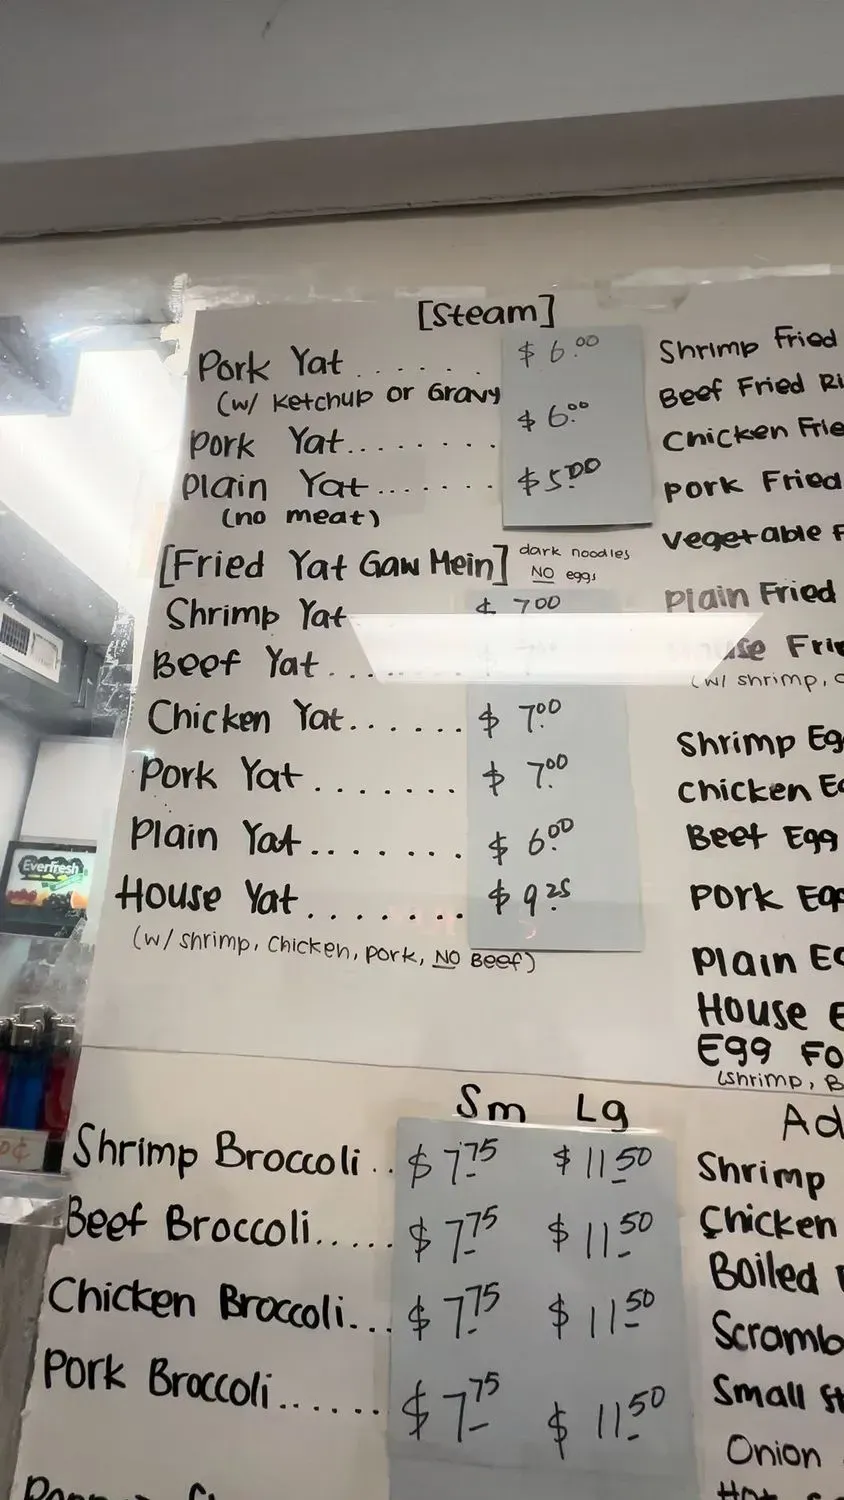 [Steam]
Pork Yat ...... $6.00
(w/ Ketchup or Gravy
Pork Yat........ $6.00
Plain Yat....... $5.00
(no meat)
[Fried Yat Gaw Mein] dark noodles
NO eggs
Shrimp Yat $7.00
Beef Yat
Chicken Yat...... $7.00
Pork Yat....... $7.00
Plain Yat....... $6.00
House Yat....... $9.25
(w/ shrimp, chicken, pork, NO Beef)
Shrimp Fried
Beef Fried
Chicken
Pork Fried
Vegetable
Plain Fried
(w/ shrimp,
Shrimp
Chicken
Beef Egg
Pork
Plain
House
Egg
(shrimp,
Sm Lg
Shrimp Broccoli.. $7.75 $11.50
Beef Broccoli..... $7.75 $11.50
Chicken Broccoli... $7.75 $11.50
Pork Broccoli...... $7.75 $11.50
Shrimp
Chicken
Boiled
Small
Onion
Everfresh